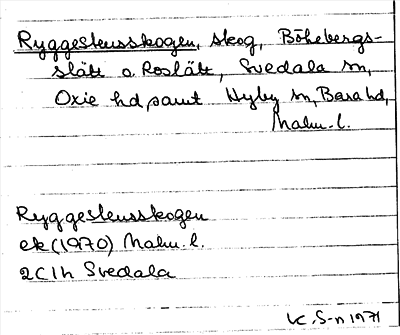 Ryggestensskogen, skog, Bökebergs-
slätt o. Roslätt, Svedala sn,
Oxie hd, samt Hyby sn, Bara hd,
Malm. l.
Ryggestensskogen
ek (1970) Malm. l.
2C1h Svedala
K. S-n 1971